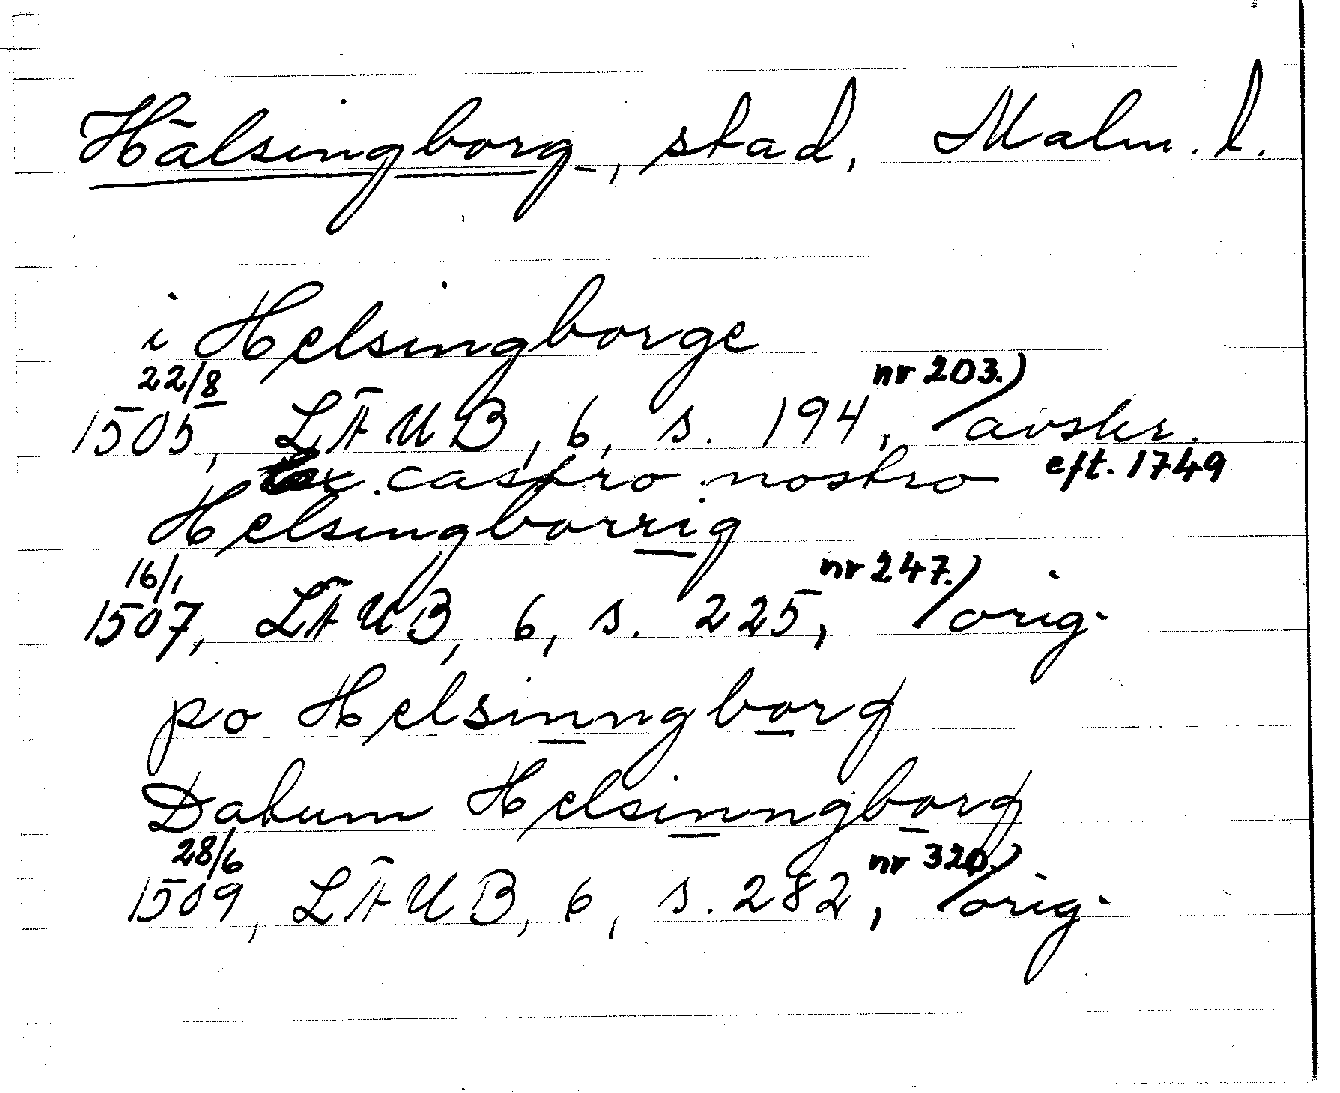 Hälsingborg, stad, Malm. l.
i Helsingborge
22/8
1505, LÄUB, 6, s. 194, nr 203.) avskr. eft. 1749
ex castro nostro
Helsingborrig
16/1
1507, LÄUB, 6, s. 225, nr 247.) orig.
po Helsinngborg
Datum Helsinngborg
28/6
1509, LÄUB, 6, s. 282, nr 320.) orig.